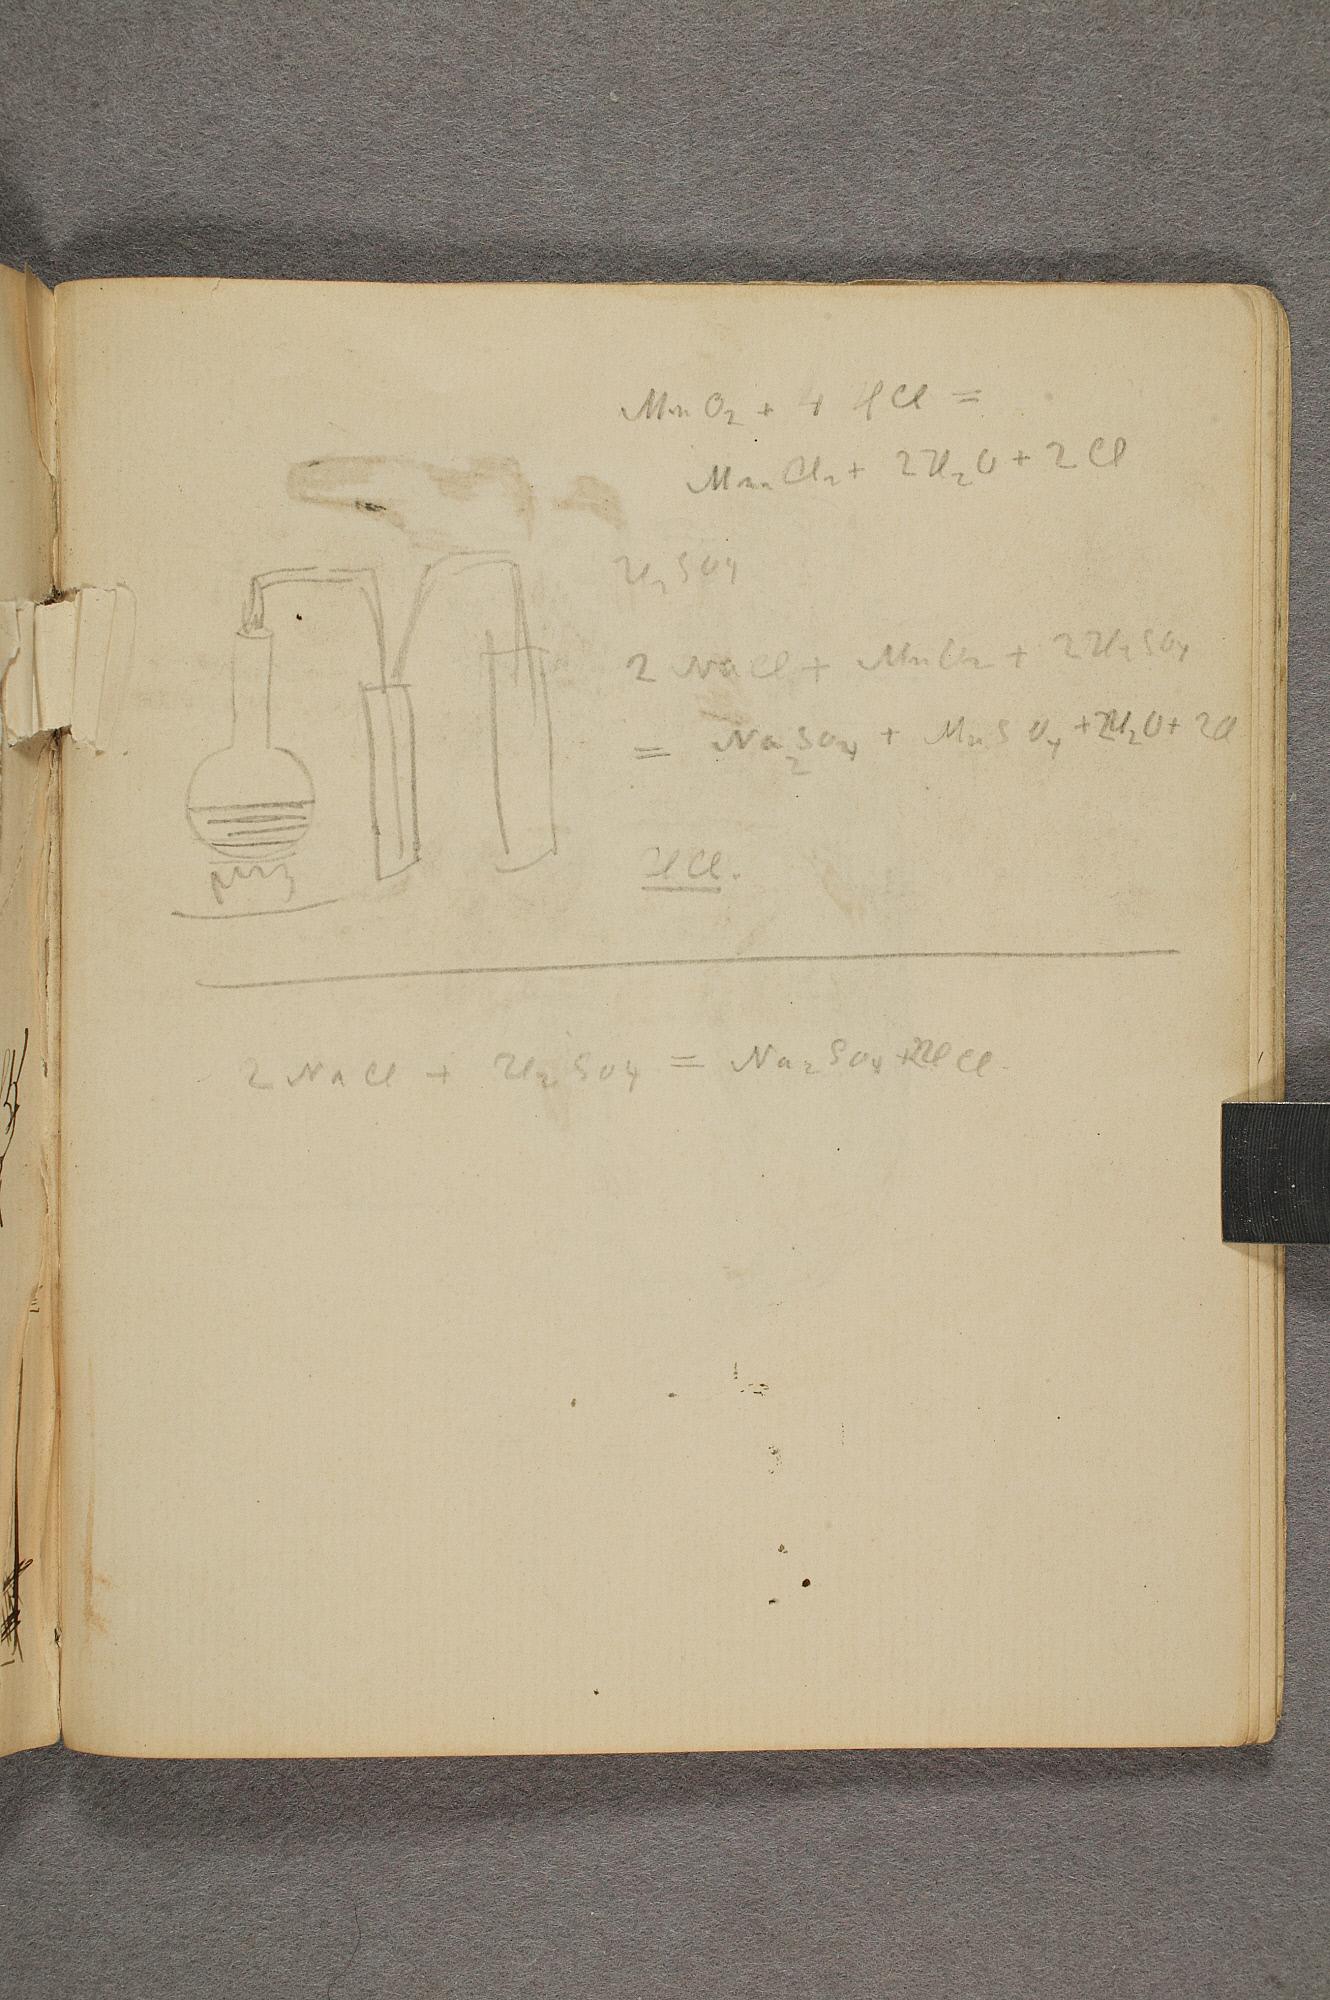 MnO2 + 4 HCl =
MnCl2 + 2H2O + 2Cl
H2SO4
2 NaCl + MnO2 + 2H2SO4
= Na2SO4 + MnSO4 + 2H2O + 2Cl
HCl.
2 NaCl + H2SO4 = Na2SO4 + 2HCl.